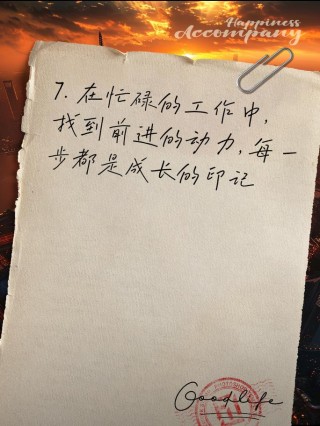 Happiness
Accompany
7. 在忙碌的工作中,
找到前进的动力,每一
步都是成长的印记
Goodlife